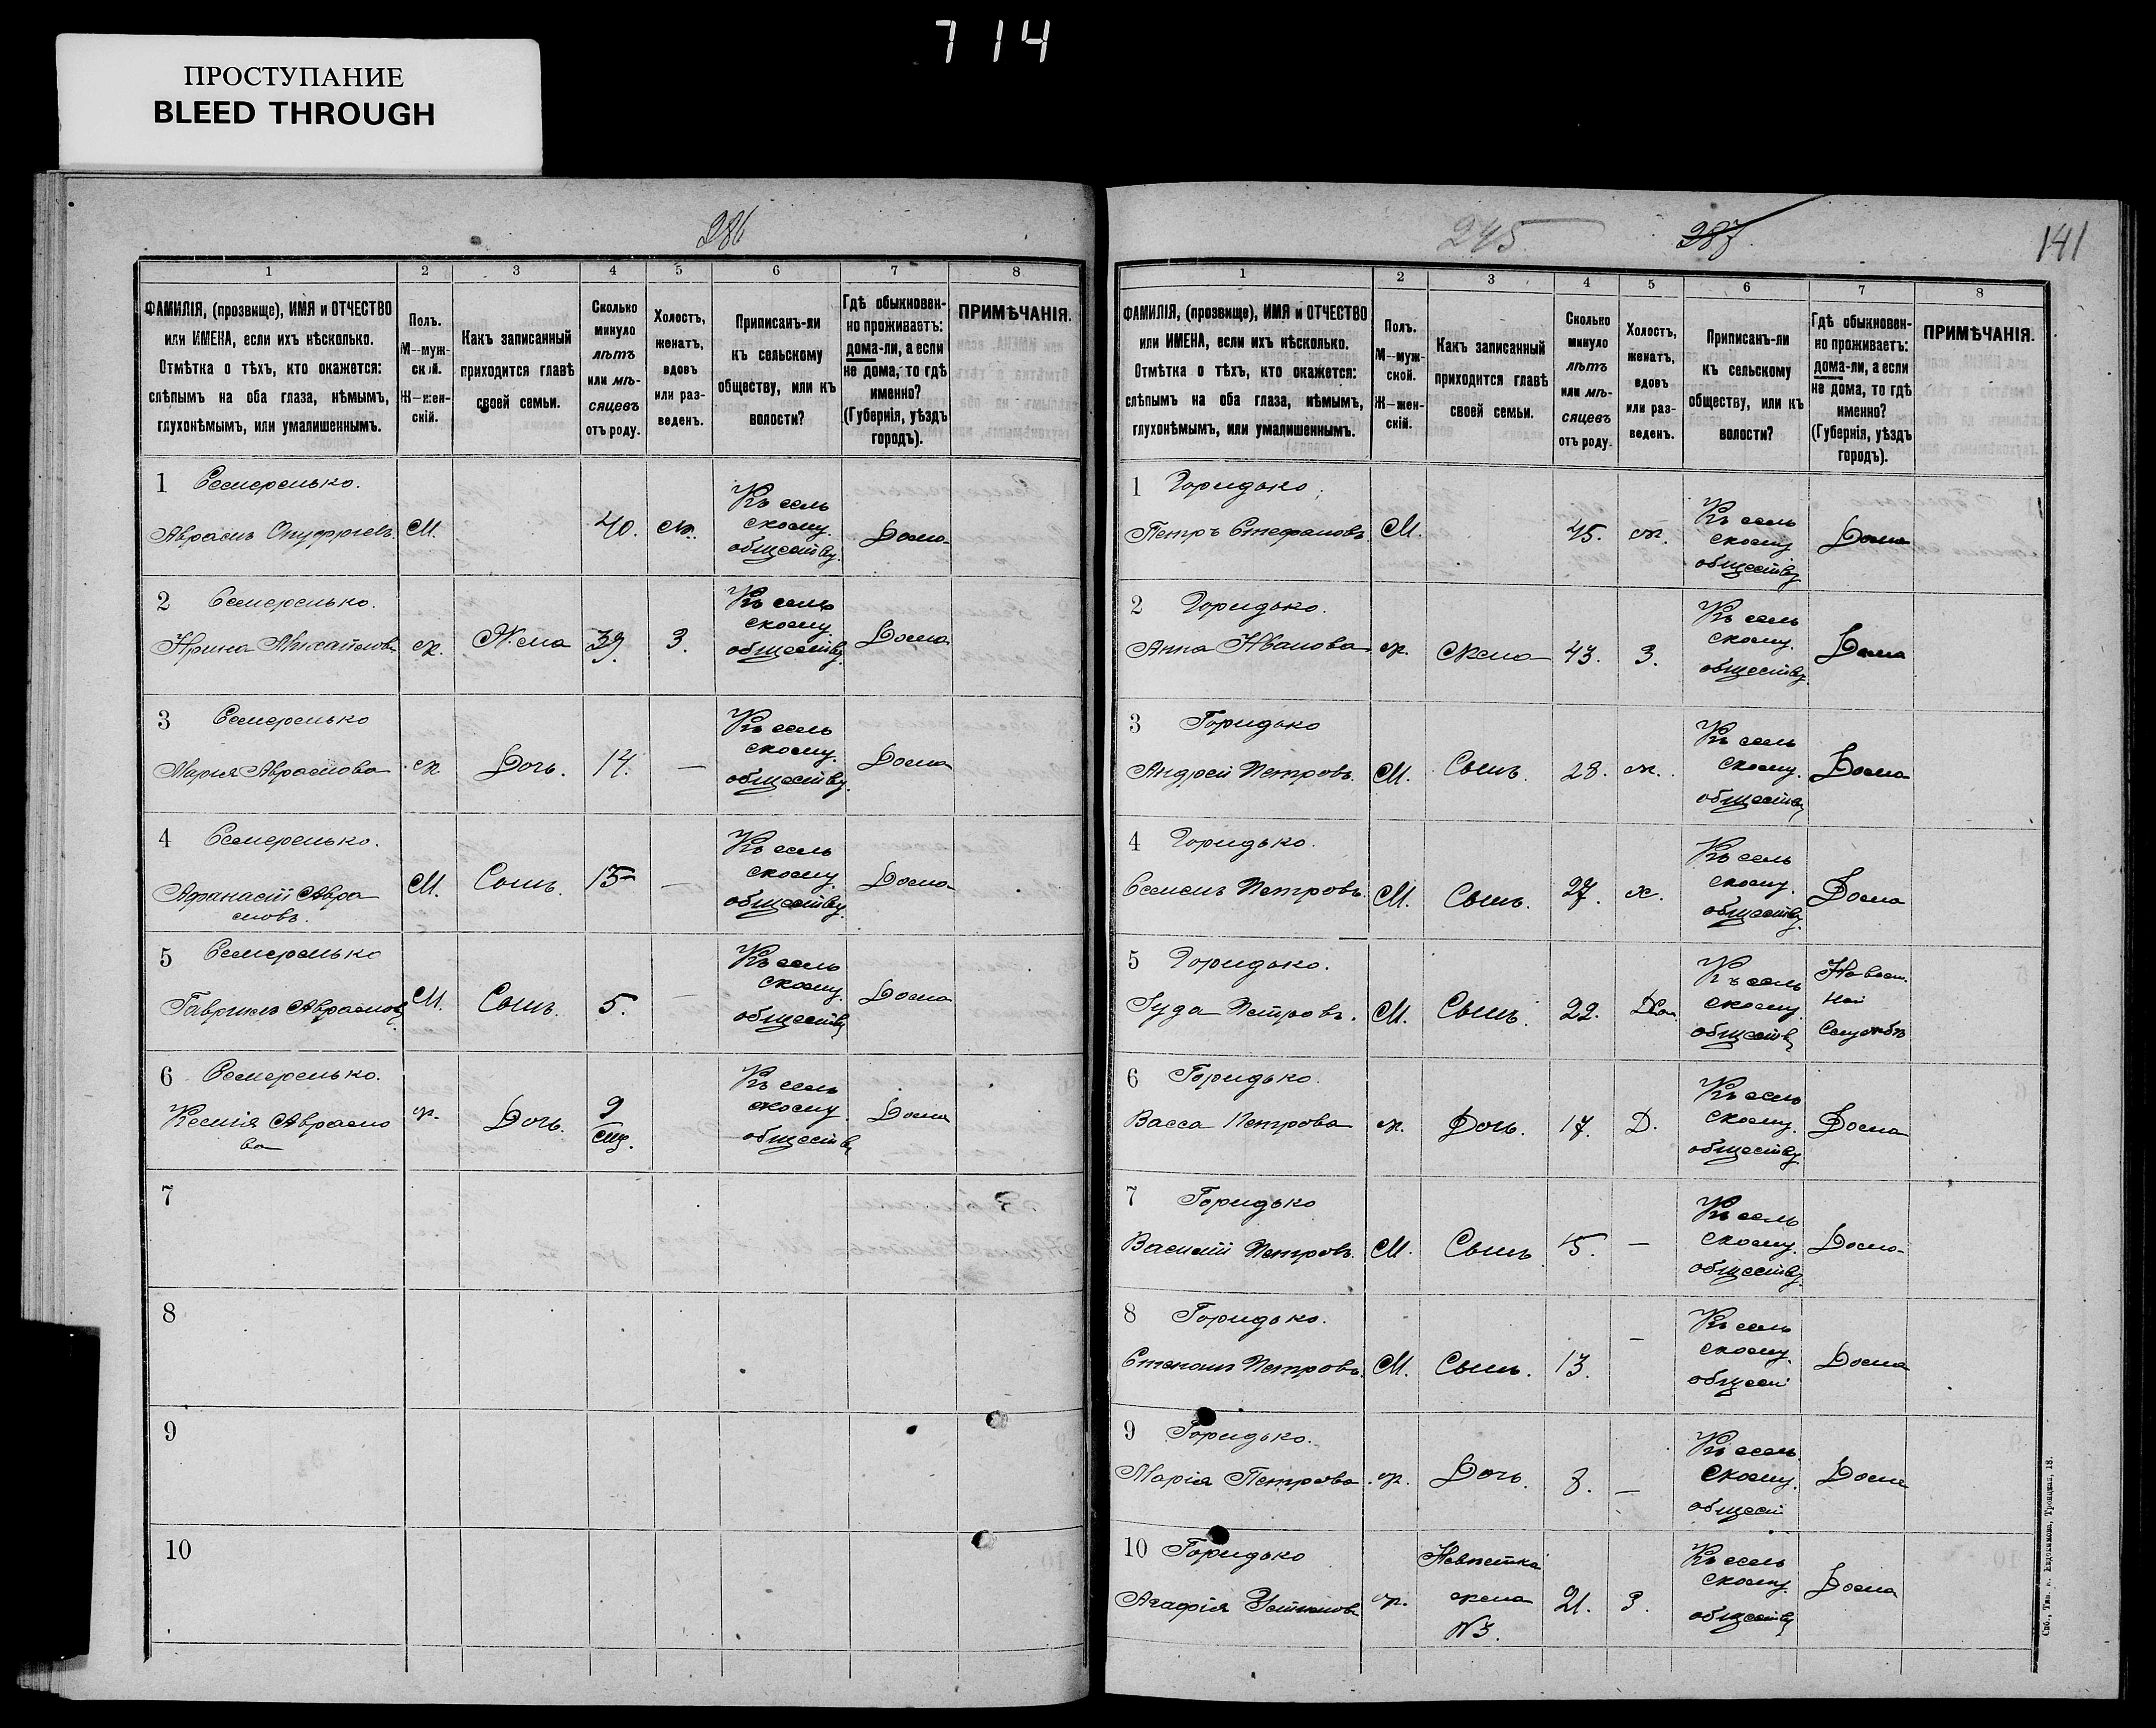 714
ПРОСТУПАНИЕ
BLEED THROUGH
286
1 2 3 4 5 6 7 8
ФАМИЛІЯ, (прозвище), ИМЯ и ОТЧЕСТВО или ИМЕНА, если ихъ нѣсколько. Отмѣтка о тѣхъ, кто окажется: слѣпымъ на оба глаза, нѣмымъ, глухонѣмымъ, или умалишеннымъ.
Полъ. М—мужской. Ж—женскій.
Какъ записанный приходится главѣ своей семьи.
Сколько минуло лѣтъ или мѣсяцевъ отъ роду.
Холостъ, женатъ, вдовъ или разведенъ.
Приписанъ-ли къ сельскому обществу, или къ волости?
Гдѣ обыкновенно проживаетъ: дома-ли, а если не дома, то гдѣ именно? (Губернія, уѣздъ городъ).
ПРИМѢЧАНІЯ.
1 Семеренько.
Аврамъ Онуфріевъ. М. 40. ж. Къ сельскому обществу. Дома
2 Семеренько.
Ирина Михайлова ж. Жена 39. З. Къ сельскому обществу. Дома
3 Семеренько
Марія Аврамова ж Дочь. 14. — Къ сельскому обществу. Дома
4 Семеренько.
Афанасій Аврамовъ. М. Сынъ. 15 — Къ сельскому обществу. Дома
5 Семеренько
Гавриилъ Аврамовъ М. Сынъ. 5. — Къ сельскому обществу Дома
6 Семеренько.
Ксенія Аврамова ж. Дочь. 9 Къ сельскому обществу Дома
7
8
9
10
245 287 141
1 2 3 4 5 6 7 8
ФАМИЛІЯ, (прозвище), ИМЯ и ОТЧЕСТВО или ИМЕНА, если ихъ нѣсколько. Отмѣтка о тѣхъ, кто окажется: слѣпымъ на оба глаза, нѣмымъ, глухонѣмымъ, или умалишеннымъ.
Полъ. М—мужской. Ж—женскій.
Какъ записанный приходится главѣ своей семьи.
Сколько минуло лѣтъ или мѣсяцевъ отъ роду.
Холостъ, женатъ, вдовъ или разведенъ.
Приписанъ-ли къ сельскому обществу, или къ волости?
Гдѣ обыкновенно проживаетъ: дома-ли, а если не дома, то гдѣ именно? (Губернія, уѣздъ городъ).
ПРИМѢЧАНІЯ.
1 Горидько.
Петръ Стефановъ М. 45. ж. Къ сельскому обществу Дома
2 Горидько.
Анна Иванова ж. жена 43. З. Къ сельскому. обществу. Дома
3 Горидько
Андрей Петровъ. М. Сынъ. 28. ж. Къ сельскому. обществу Дома
4 Горидько.
Семенъ Петровъ. М. Сынъ. 27. х. Къ сельскому. обществу. Дома
5 Горидько.
Іуда Петровъ. М. Сынъ. 22. Къ сельскому. обществу Службѣ
6 Горидько.
Васса Петрова ж. Дочь. 17. Д. Къ сельскому. обществу. Дома
7 Горидько
Василій Петровъ. М. Сынъ 15. — Къ сельскому. обществу. Дома
8 Горидько.
Степанъ Петровъ. М. Сынъ. 13. — Къ сельскому. общест Дома
9 Горидько.
Марія Петрова ж. Дочь. 8. — Къ сельскому. общест Дома
10 Горидько
Агафія Устинова ж. Невѣстка жена №3. 21. З. Къ сельскому. обществу Дома